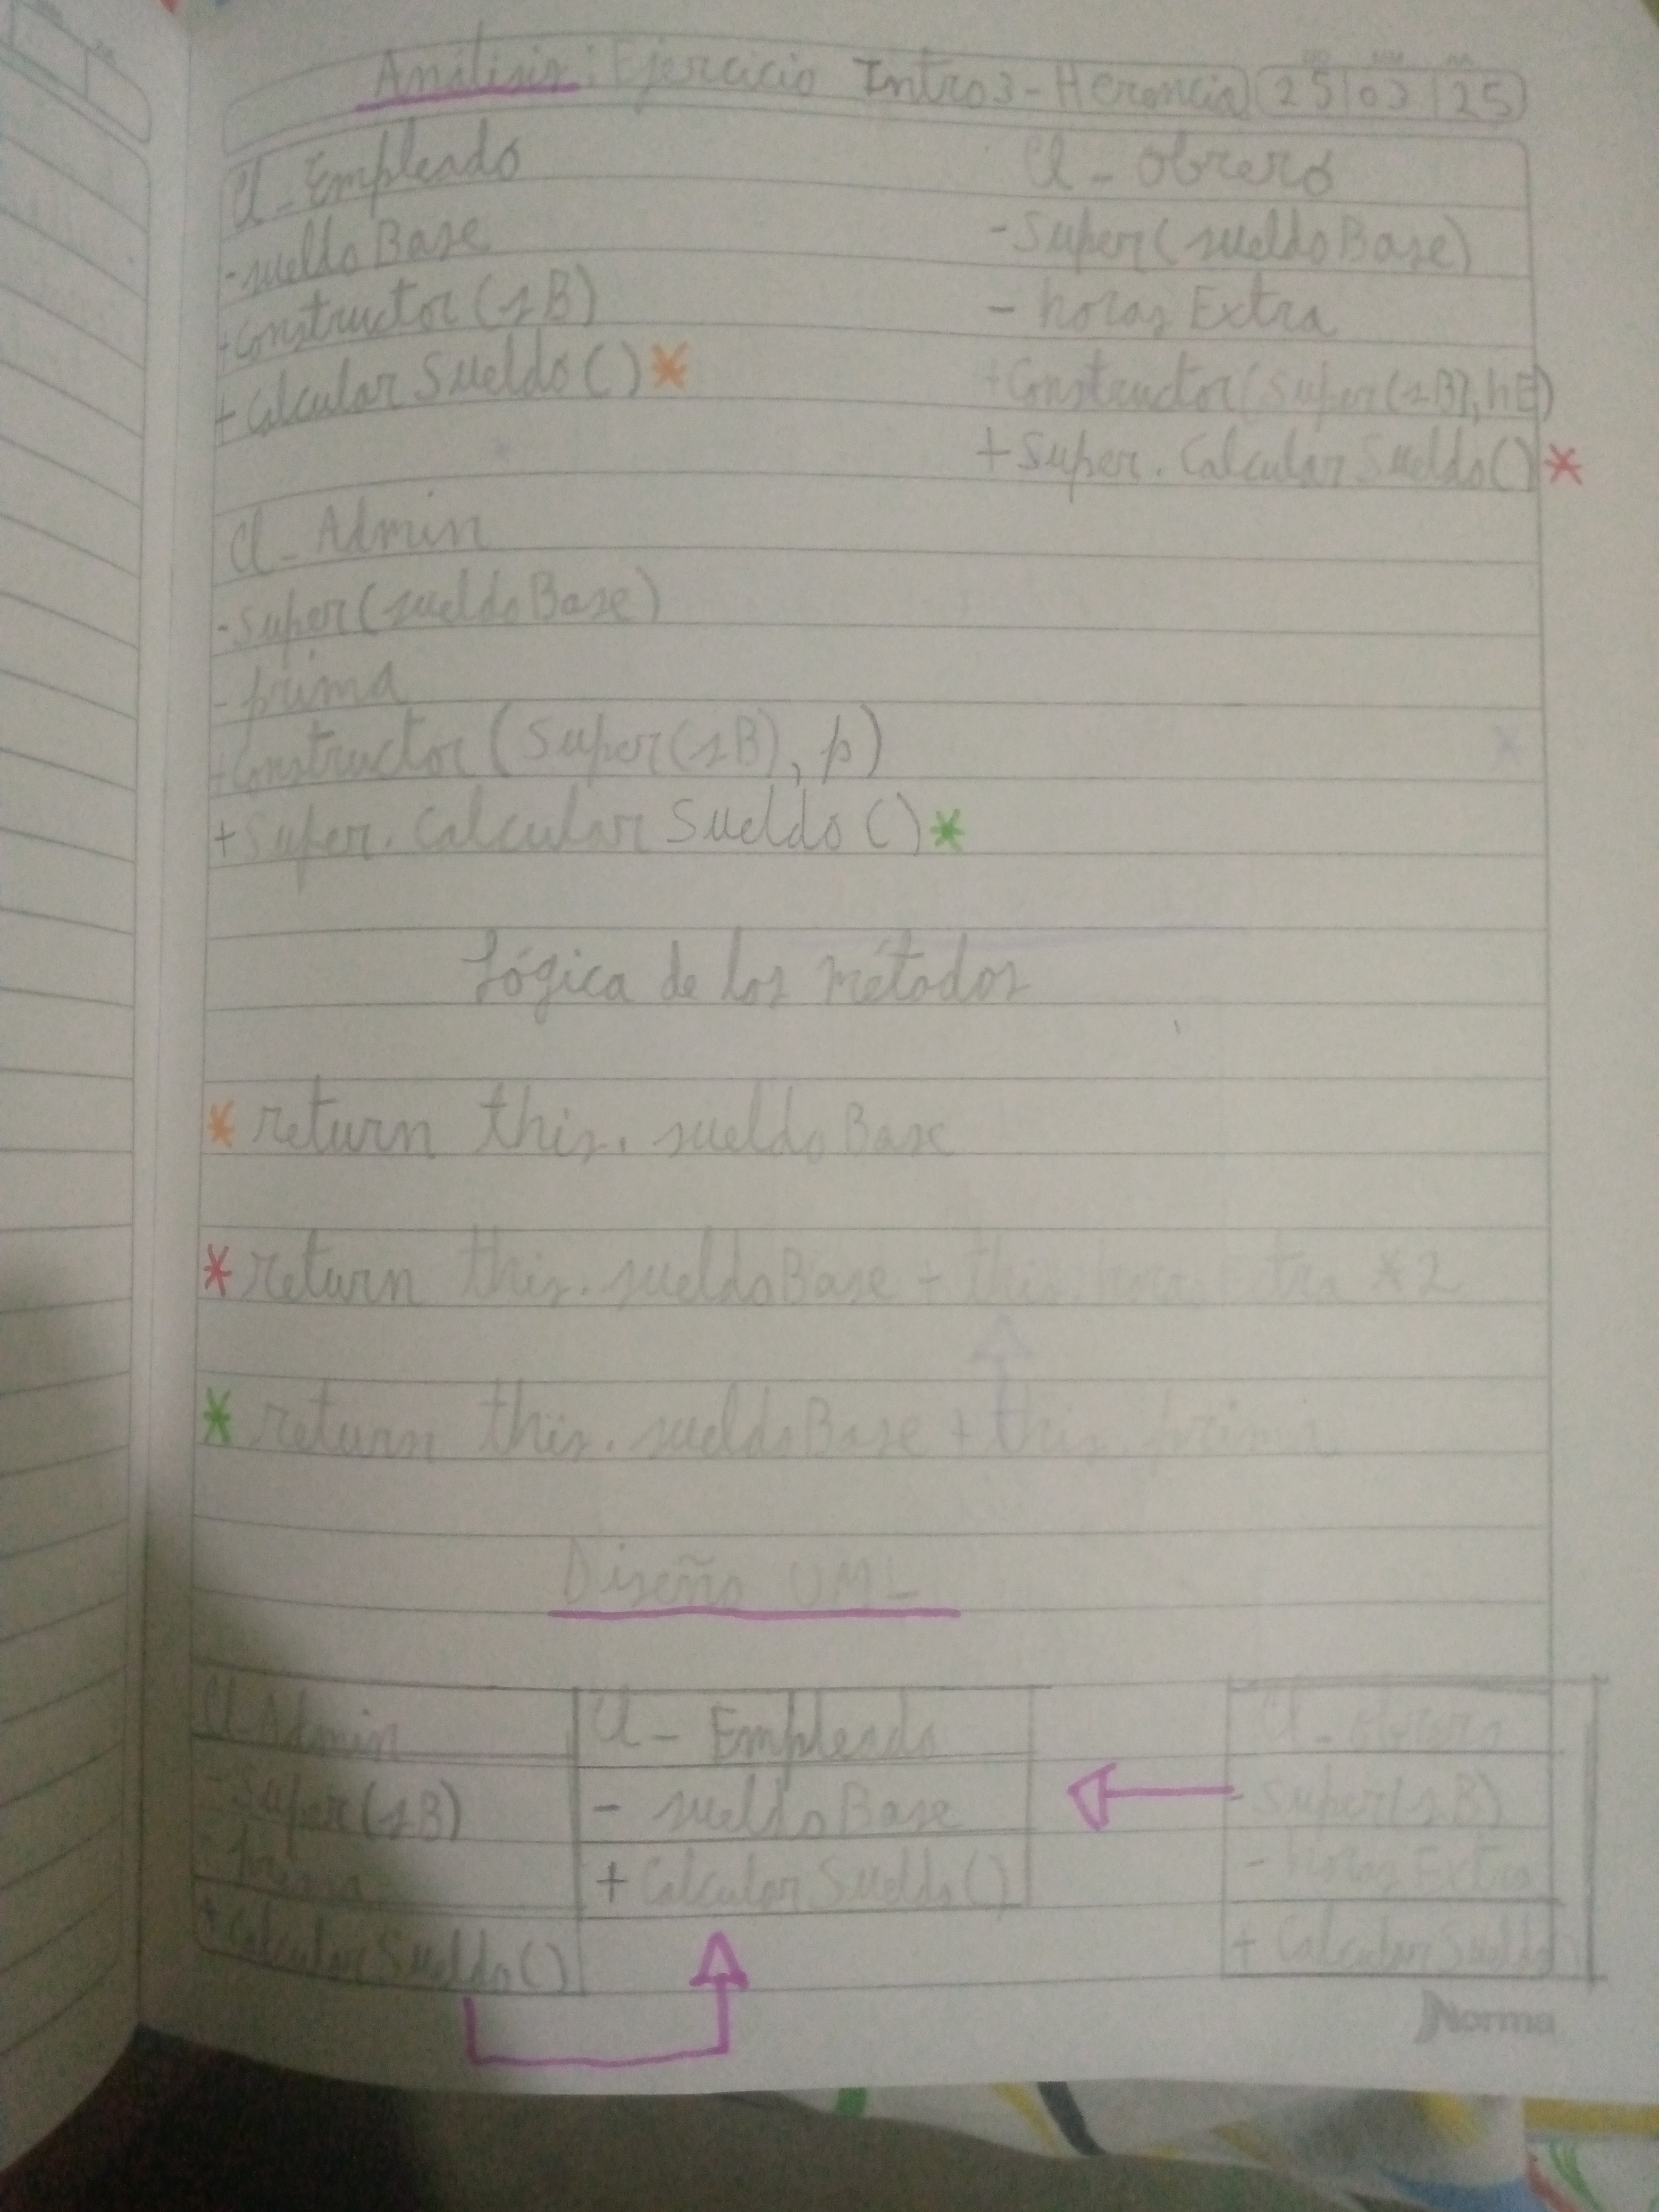 Análisis: Ejercicio Intro3-Herencia 25 03 25
Cl_Empleado
-sueldoBase
+Constructor(sB)
+CalcularSueldo()*
Cl_Obrero
-Super(sueldoBase)
-horasExtra
+Constructor(Super(sB), hE)
+Super.CalcularSueldo()*
Cl_Admin
-Super(sueldoBase)
-prima
+Constructor(Super(sB), p)
+Super.CalcularSueldo()*
Lógica de los métodos
* return this.sueldoBase
* return this.sueldoBase + this.horasExtra * 2
* return this.sueldoBase + this.prima
Diseño UML
Cl_Admin
-Super(sB)
-Prima
+CalcularSueldo()
Cl_Empleado
-sueldoBase
+CalcularSueldo()
Cl_Obrero
-Super(sB)
-HorasExtra
+CalcularSueldo()
Norma